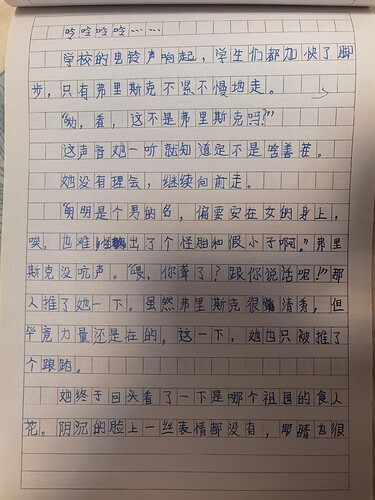 呤呤呤呤……
学校的电铃声响起，学生们都加快了脚
步，只有弗里斯克不紧不慢地走。
“呦，看，这不是弗里斯克吗？”
这声音她一听就知道定不是啥善茬。
她没有理会，继续向前走。
“明明是个男的名，偏要安在女的身上，
唉，也难出了个怪胎和假小子啊。”弗里
斯克没吭声。“喂，你聋了？跟你说话呢！”那
人推了她一下。虽然弗里斯克很清秀，但
毕竟力量还是在的，这一下，她也只被推了
个踉跄。
她终于回头看了一下是哪个祖国的食人
花。阴沉的脸上一丝表情都没有，眼睛也很